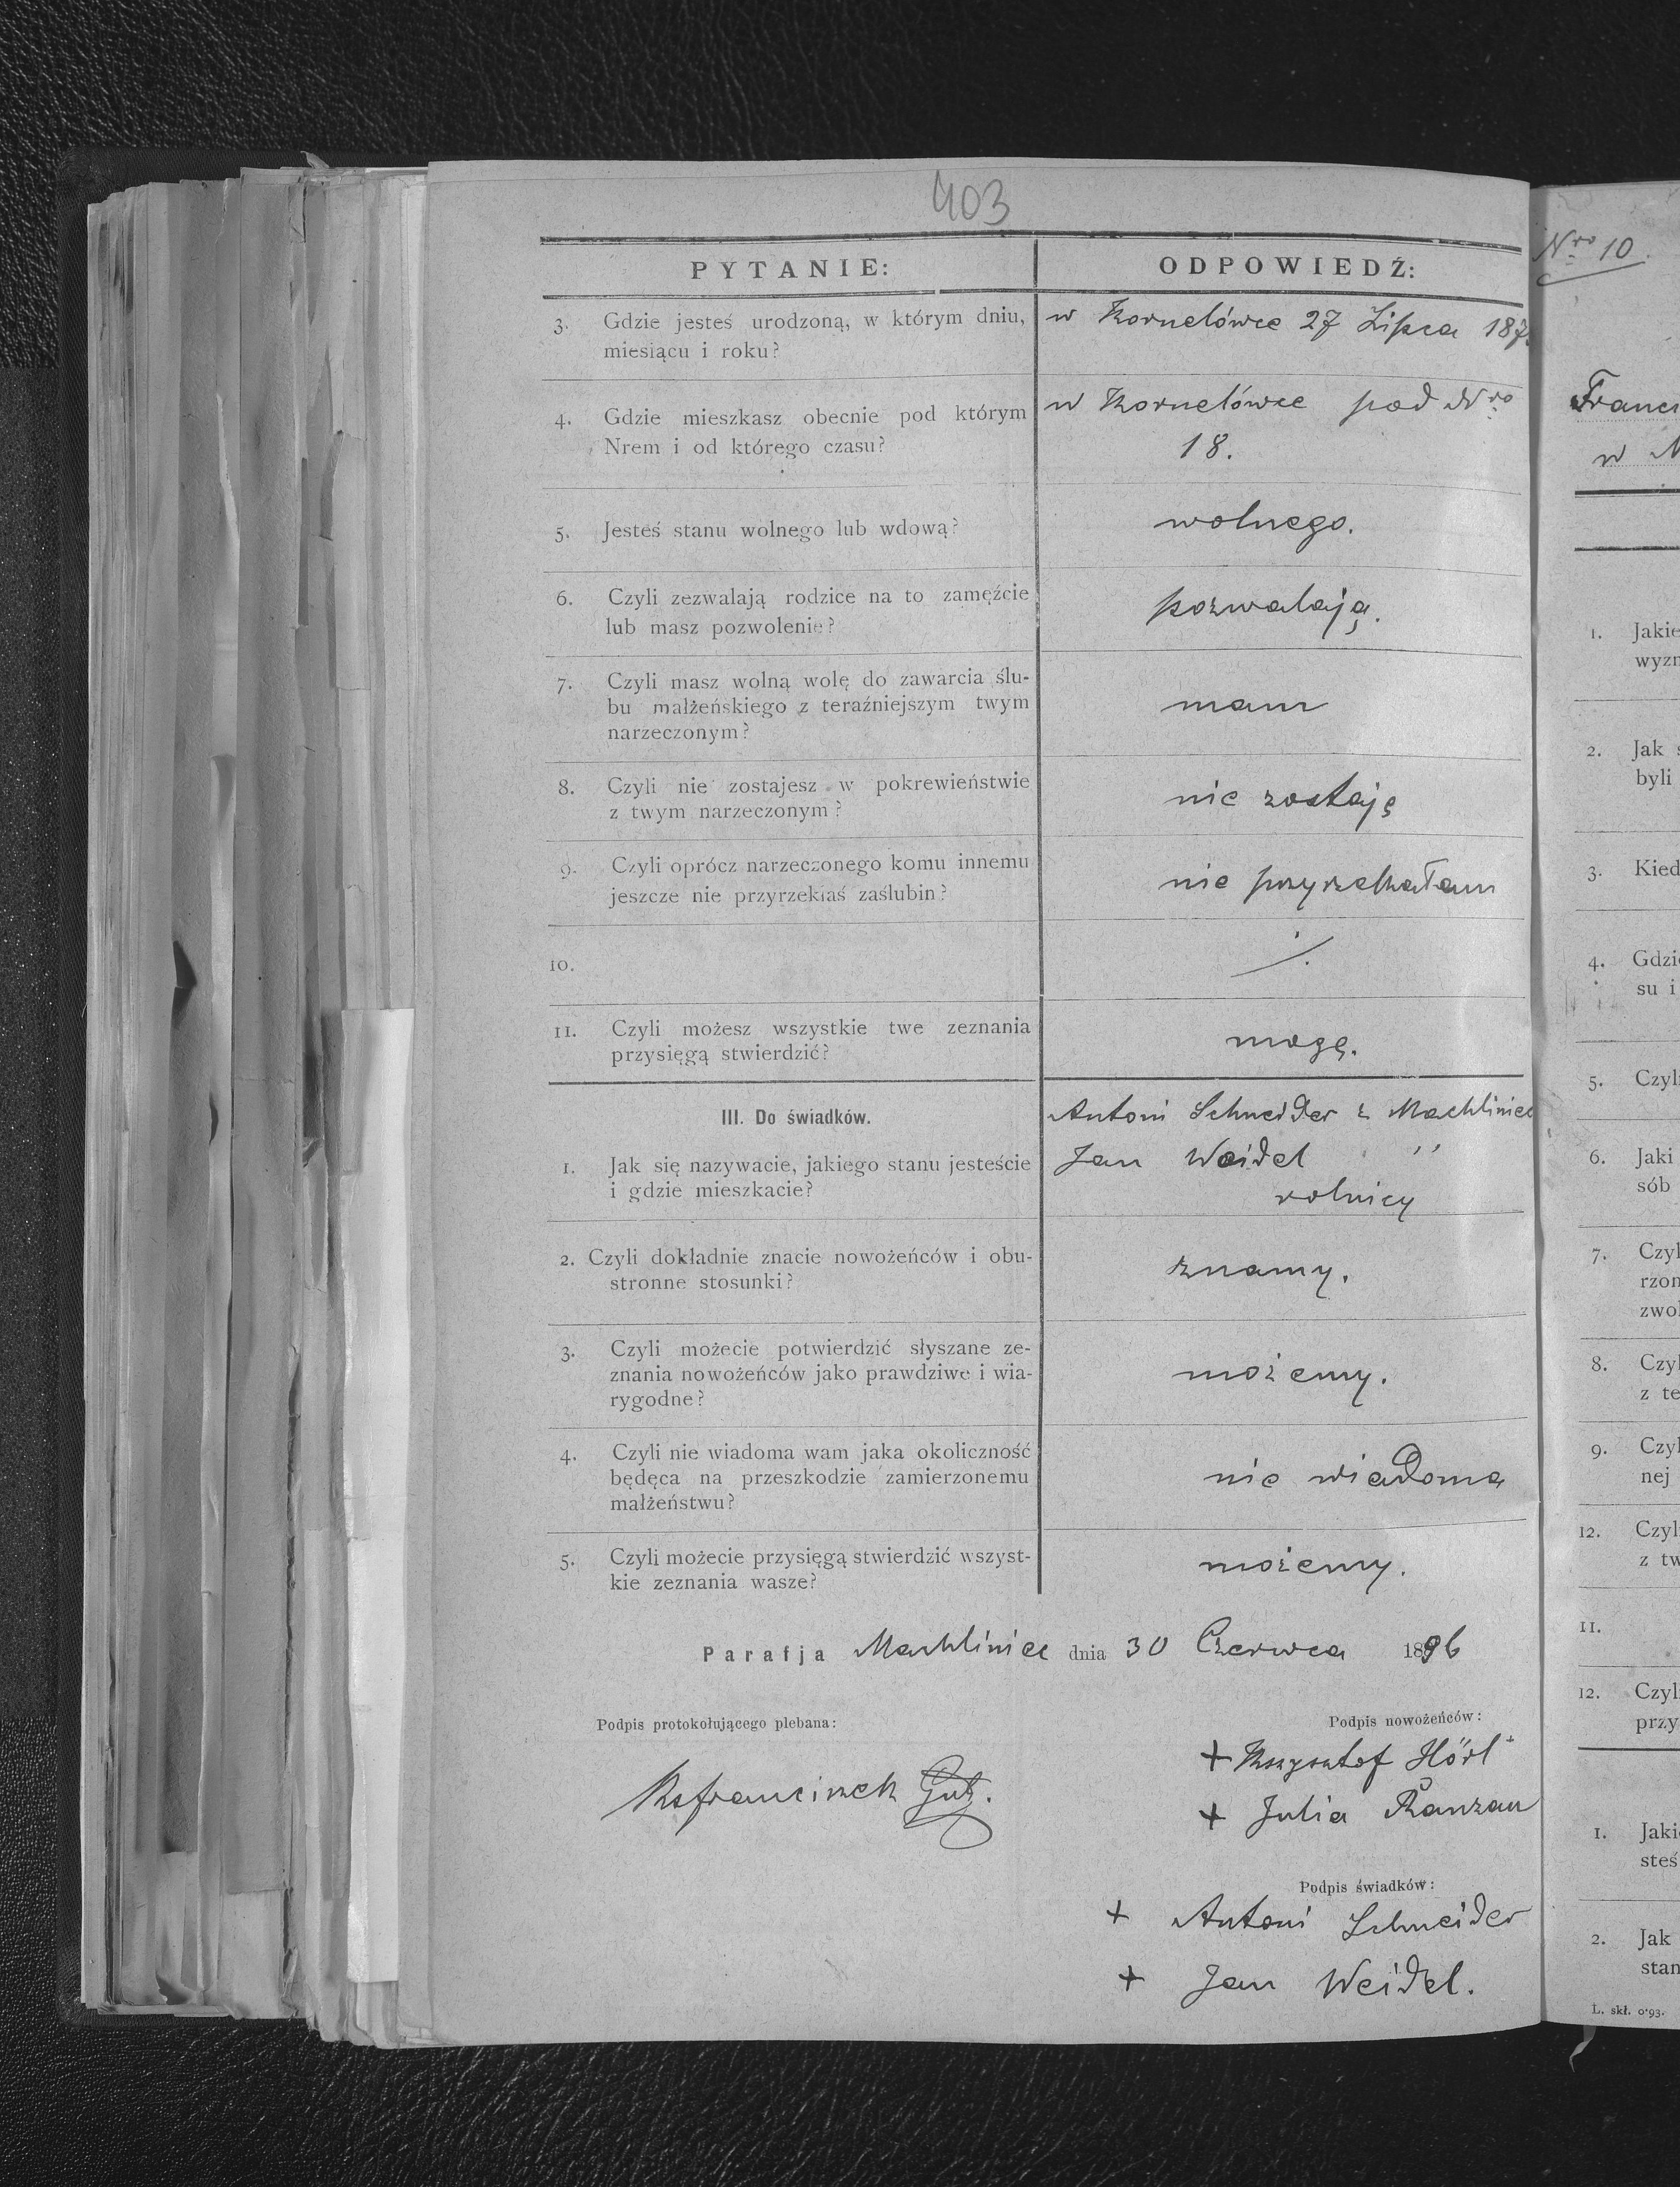 403
PYTANIE:
ODPOWIEDŹ:
3. Gdzie jesteś urodzoną, w którym dniu,
miesiącu i roku?
w Kornelówce 27 Lipca 187
4. Gdzie mieszkasz obecnie pod którym
Nrem i od którego czasu?
w Kornelówce pod Nro
18.
5. Jesteś stanu wolnego lub wdową?
wolnego.
6. Czyli zezwalają rodzice na to zamęźcie
lub masz pozwolenie?
pozwalają.
7. Czyli masz wolną wolę do zawarcia ślu-
bu małżeńskiego z teraźniejszym twym
narzeczonym?
mam
8. Czyli nie zostajesz w pokrewieństwie
z twym narzeczonym?
nie zostaję
9. Czyli oprócz narzeczonego komu innemu
jeszcze nie przyrzekłaś zaślubin?
nie przyrzekałam
10.
11. Czyli możesz wszystkie twe zeznania
przysięgą stwierdzić?
mogę.
III. Do świadków.
1. Jak się nazywacie, jakiego stanu jesteście
i gdzie mieszkacie?
Antoni Schneider z Machliniec
Jan Weidel ''
rolnicy
2. Czyli dokładnie znacie nowożeńców i obu-
stronne stosunki?
znamy.
3. Czyli możecie potwierdzić słyszane ze-
znania nowożeńców jako prawdziwe i wia-
rygodne?
możemy.
4. Czyli nie wiadoma wam jaka okoliczność
będęca na przeszkodzie zamierzonemu
małżeństwu?
nie wiadoma
5. Czyli możecie przysięgą stwierdzić wszyst-
kie zeznania wasze?
możemy.
Parafja Machliniec dnia 30 Czerwca 1896
Podpis protokołującego plebana:
Podpis nowożeńców:
+ Krzysztof Hörl
+ Julia Ranzau
Ks Franciszek Gutz.
Podpis świadków:
+ Antoni Schneider
+ Jan Weidel.
Nro 10.
Franci
w N
1. Jakie
wyzn
2. Jak s
byli
3. Kied
4. Gdzi
su i
5. Czyl
6. Jaki
sób
7. Czyl
rzon
zwol
8. Czyl
z te
9. Czyl
nej
12. Czyl
z tw
11.
12. Czyl
przy
1. Jaki
steś
2. Jak
stan
L. skł. 0·93.